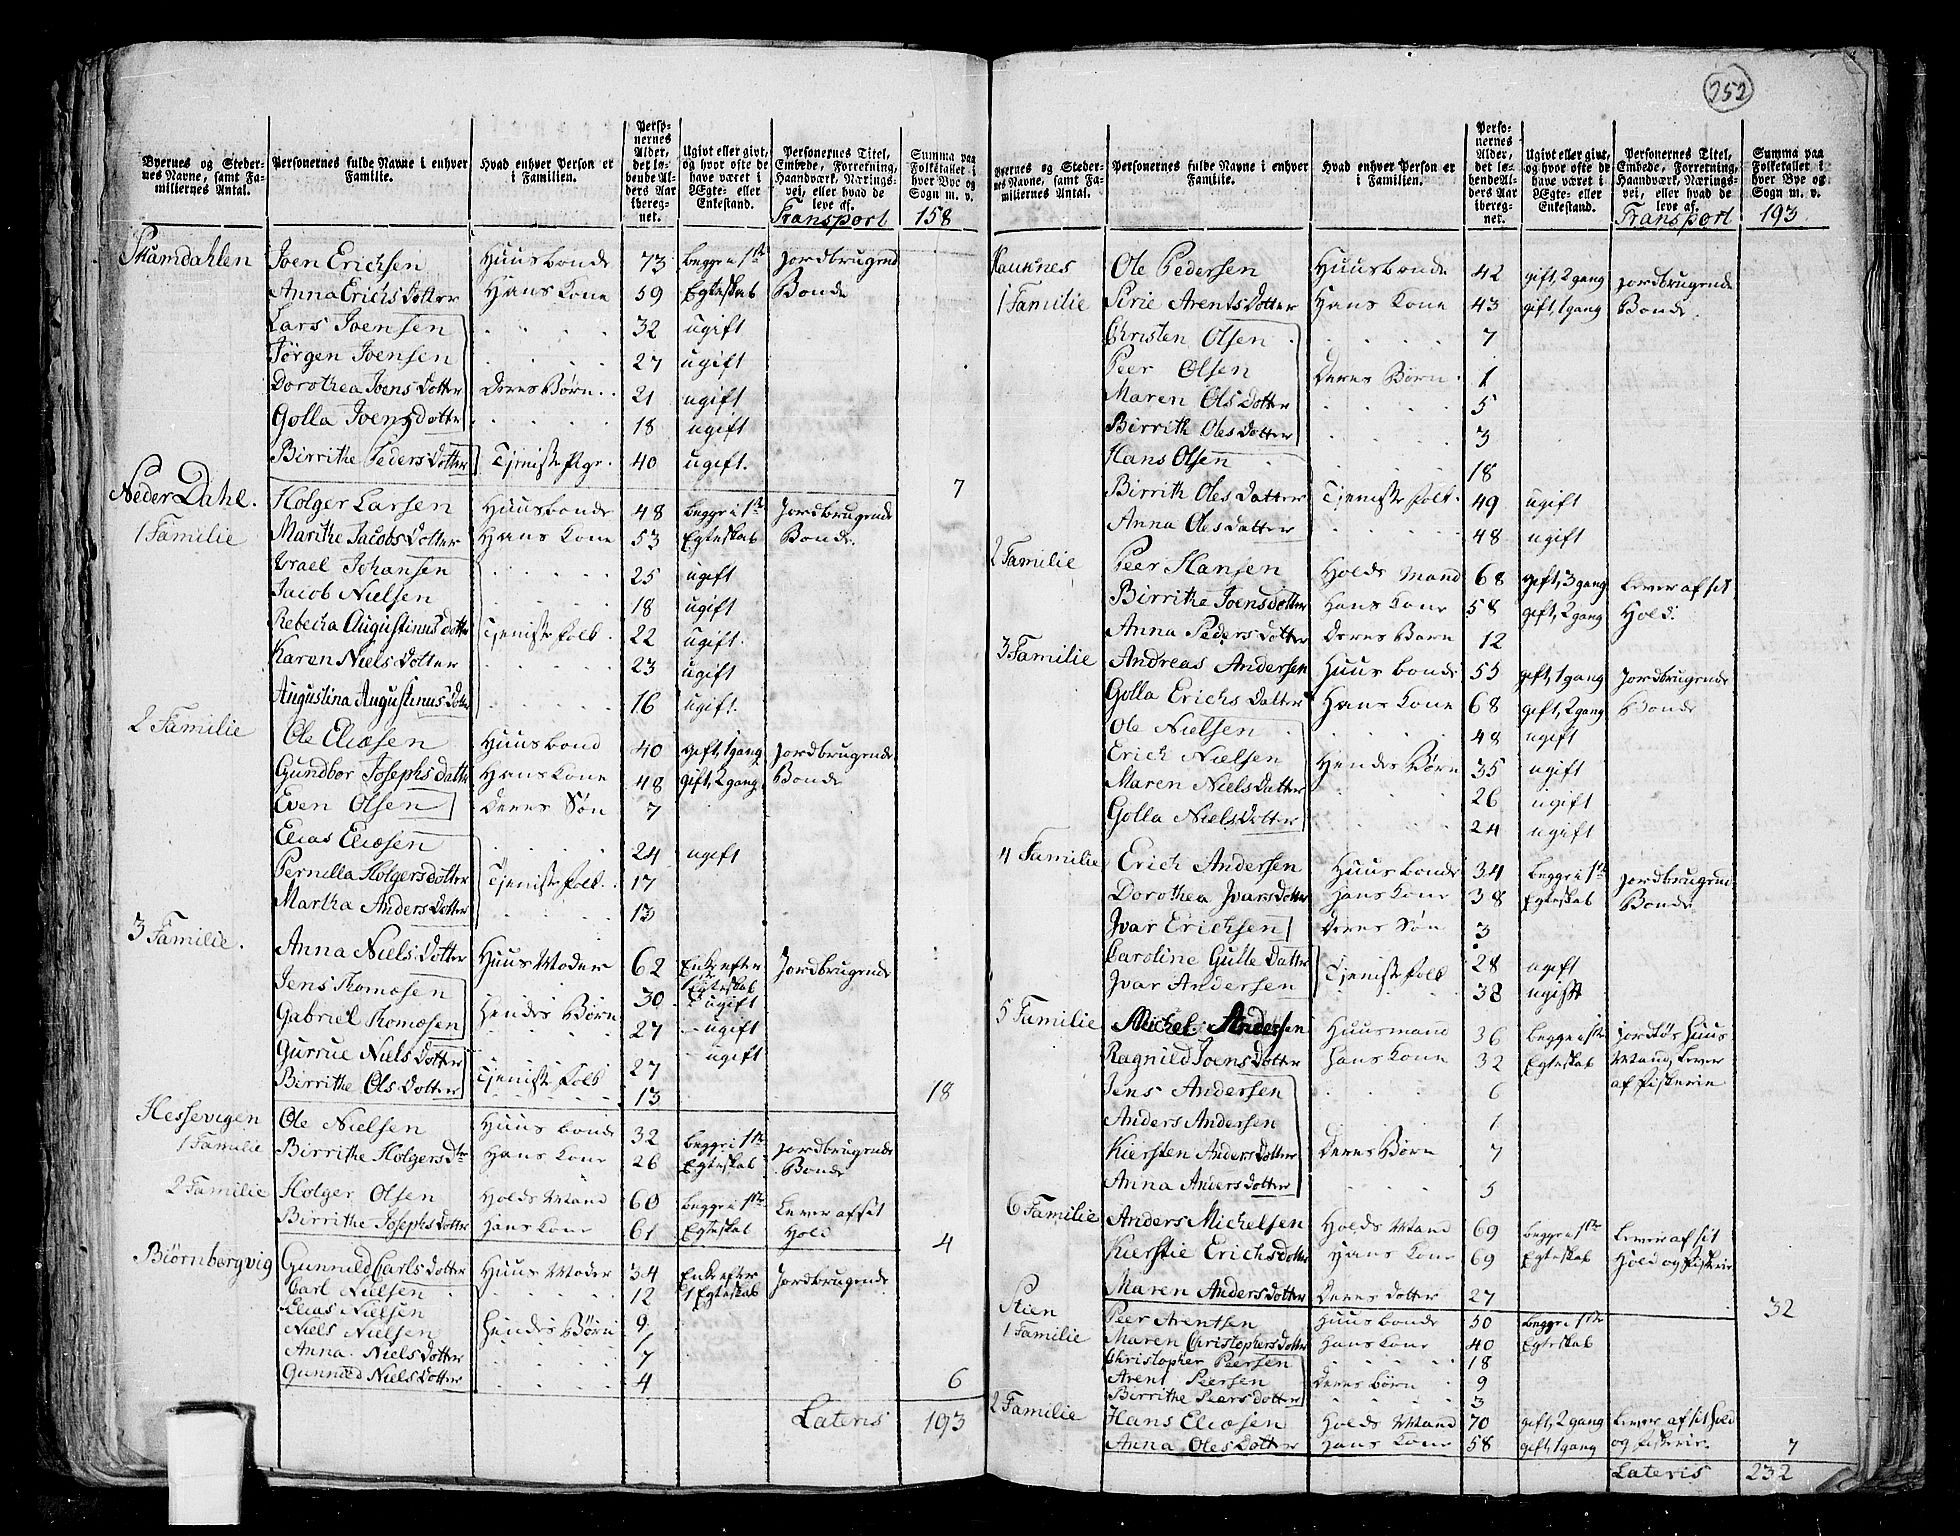 252
Byernes og Steder-
nes Navne, samt Fa-
miliernes Antal.
Personernes fulde Navne i enhver
Familie.
Hvad enhver Person er
i Familien.
Perso-
nernes
Alder,
det lø-
bende Al-
ders Aar
ibereg-
net.
Ugivt eller givt,
og hvor ofte de
have været i
Ægte- eller
Enkestand.
Personernes Titel,
Embede, Forretning,
Haandværk, Nærings-
vei, eller hvad de
leve af.
Summa paa
Folketallet i
hver Bye og
Sogn m. v.
Transport 158
Skamdahlen Joen Erichsen Huusbonde 73 begge i 1ste Jordbrugend
Anna Erichs Dotter Hans Kone 59 Egteskab Bonde
Lars Joensen 32 ugift
Jørgen Joensen 27 ugift
Dorothea Joens Dotter Deres Børn 21 ugift
Golla Joensdotter 18 ugift
Birrithe Peders Dotter Tjeniste Pige 40 ugift. 7
Neder Dahl. Holger Larsen Huusbonde 48 begge i 1ste Jordbrugende
1 Familie Marithe Jacobs Dotter Hans Kone 53 Egteskab Bonde.
Israel Johansen 25 ugift
Jacob Nielsen 18 ugift
Rebecka Augustinus dotter Tjeniste folk 22 ugift.
Karen Niels Dotter 23 ugift
Augustina Augustinus Dotter 16 ugift.
2 Familie Ole Eliæsen Huusbond 40 gift, 1 gang Jordbrugende
Gundbor Josephs Datter Hans Kone 48 gift, 2 gang Bonde
Even Olsen Deres Søn 7
Elias Eliæsen 24 ugift
Pernilla Holgersdotter Tjeniste folk 17
Martha Anders Dotter 13
3 Familie. Anna Niels Dotter Huus Moder 62 Enke efter Jordbrugende
1 Egteskab
Jens Thomæsen 30 ugift
Gabriel Thomæsen Hendes Børn 27 ugift
Gurrue Niels Dotter 27 ugift
Birrithe Ols Dotter Tjeniste folk 13 18
Hessevigen Ole Nielsen Huus bonde 32 begge i 1ste Jordbrugende
1 Familie Birrithe Holgers Dtr Hans Kone 26 Egteskab Bonde
2 Familie Holger Olsen Holds Mand 60 begge i 1ste Lever af sit
Birrithe Josephs Dotter Hans Kone 61 Egteskab Hold 4
Biörnborgvig Gunnild Carls Dotter Huus Moder 34 Enke efter Jordbrugende
Carl Nielsen 12 1 Egteskab
Elias Nielsen 9
Niels Nielsen Hendes Børn 1
Anna Niels Dotter 7
Gunnild Niels Dotter 4 6
Lateris 193
Byernes og Steder-
nes Navne, samt Fa-
miliernes Antal.
Personernes fulde Navne i enhver
Familie.
Hvad enhver Person er
i Familien.
Perso-
nernes
Alder,
det lø-
bende Al-
ders Aar
iberegt-
net.
Ugivt eller givt,
og hvor ofte de
have været i
Ægte- eller
Enkestand.
Personernes Titel,
Embede, Forretning,
Haandværk, Nærings-
vei, eller hvad de
leve af.
Summa paa
Folketallet i
hver Bye og
Sogn m. v.
Transport 193
Hauknes Ole Pedersen Huusbonde 42 gift, 2 gang Jordbrugende
1 Familie Sirie Arents Dotter Hans Kone 43 gift, 1 gang Bonde.
Christen Olsen 7
Peer Olsen Deres Børn 1
Maren Ols Dotter 5
Birrith Oles Dotter 3
Hans Olsen 18
Birrith Oles Datter Tjeniste folk 49 ugift
Anna Oles Datter 48 ugift
2 Familie Peer Hansen Holds Mand 68 gift, 3 gang Lever af sit
Birrithe Joensdotter Hans Kone 58 gift, 2 gang Hold.
Anna Peders Dotter Deres Barn 12
3 Familie Andreas Andersen Huus bonde 55 gift, 1 gang Jordbrugende
Golla Erichs Datter Hans Kone 68 gift, 2 gang Bonde
Ole Nielsen 48 ugift
Erich Nielsen Hendes Børn 35 ugift
Maren Niels Datter 26 ugift
Golla Niels Dotter 24 ugift
4 Familie Erich Andersen Huusbonde 34 begge i 1ste Jordbrugend
Dorothea Ivars Dotter Hans Kone 38 Egteskab Bonde
Ivar Erichsen Deres Søn 3
Caroline Gulle Datter Tjeniste folk 28 ugift
Ivar Andersen 32 ugift
5 Familie Michel Andersen Huusmand 36 begge i 1ste jordløs Huus
Ragnild Joens Dotter Hans Kone 32 Egteskab Mand, Lever
Jens Andersen 6 af fiskerie
Anders Andersen 1
Kiersten Anders Dotter Deres Børn 7
Anna Anders Dotter 5
6 Familie Anders Michelsen Holds Mand 69 begge i 1ste Lever af sit
Kierstie Erichs Dotter Hans Kone 69 Egteskab Hold og fiskerie
Maren Anders Dotter Deres Dotter 27 32
Stien Peer Arentsen Huusbonde 50 begge i 1ste
1 Familie Maren Christophers Dotter Hans Kone 40 Egteskab
Christopher Peersen 18
Arent Peersen Deres Børn 9
Birrithe Peers Dotter 3
2 Familie Hans Eliæsen Holds Mand 70 gift, 2 gang Lever af sit hold
Anna Oles Dotter Hans Kone 58 gift, 1 gang og fiskerie. 7
Lateris 232